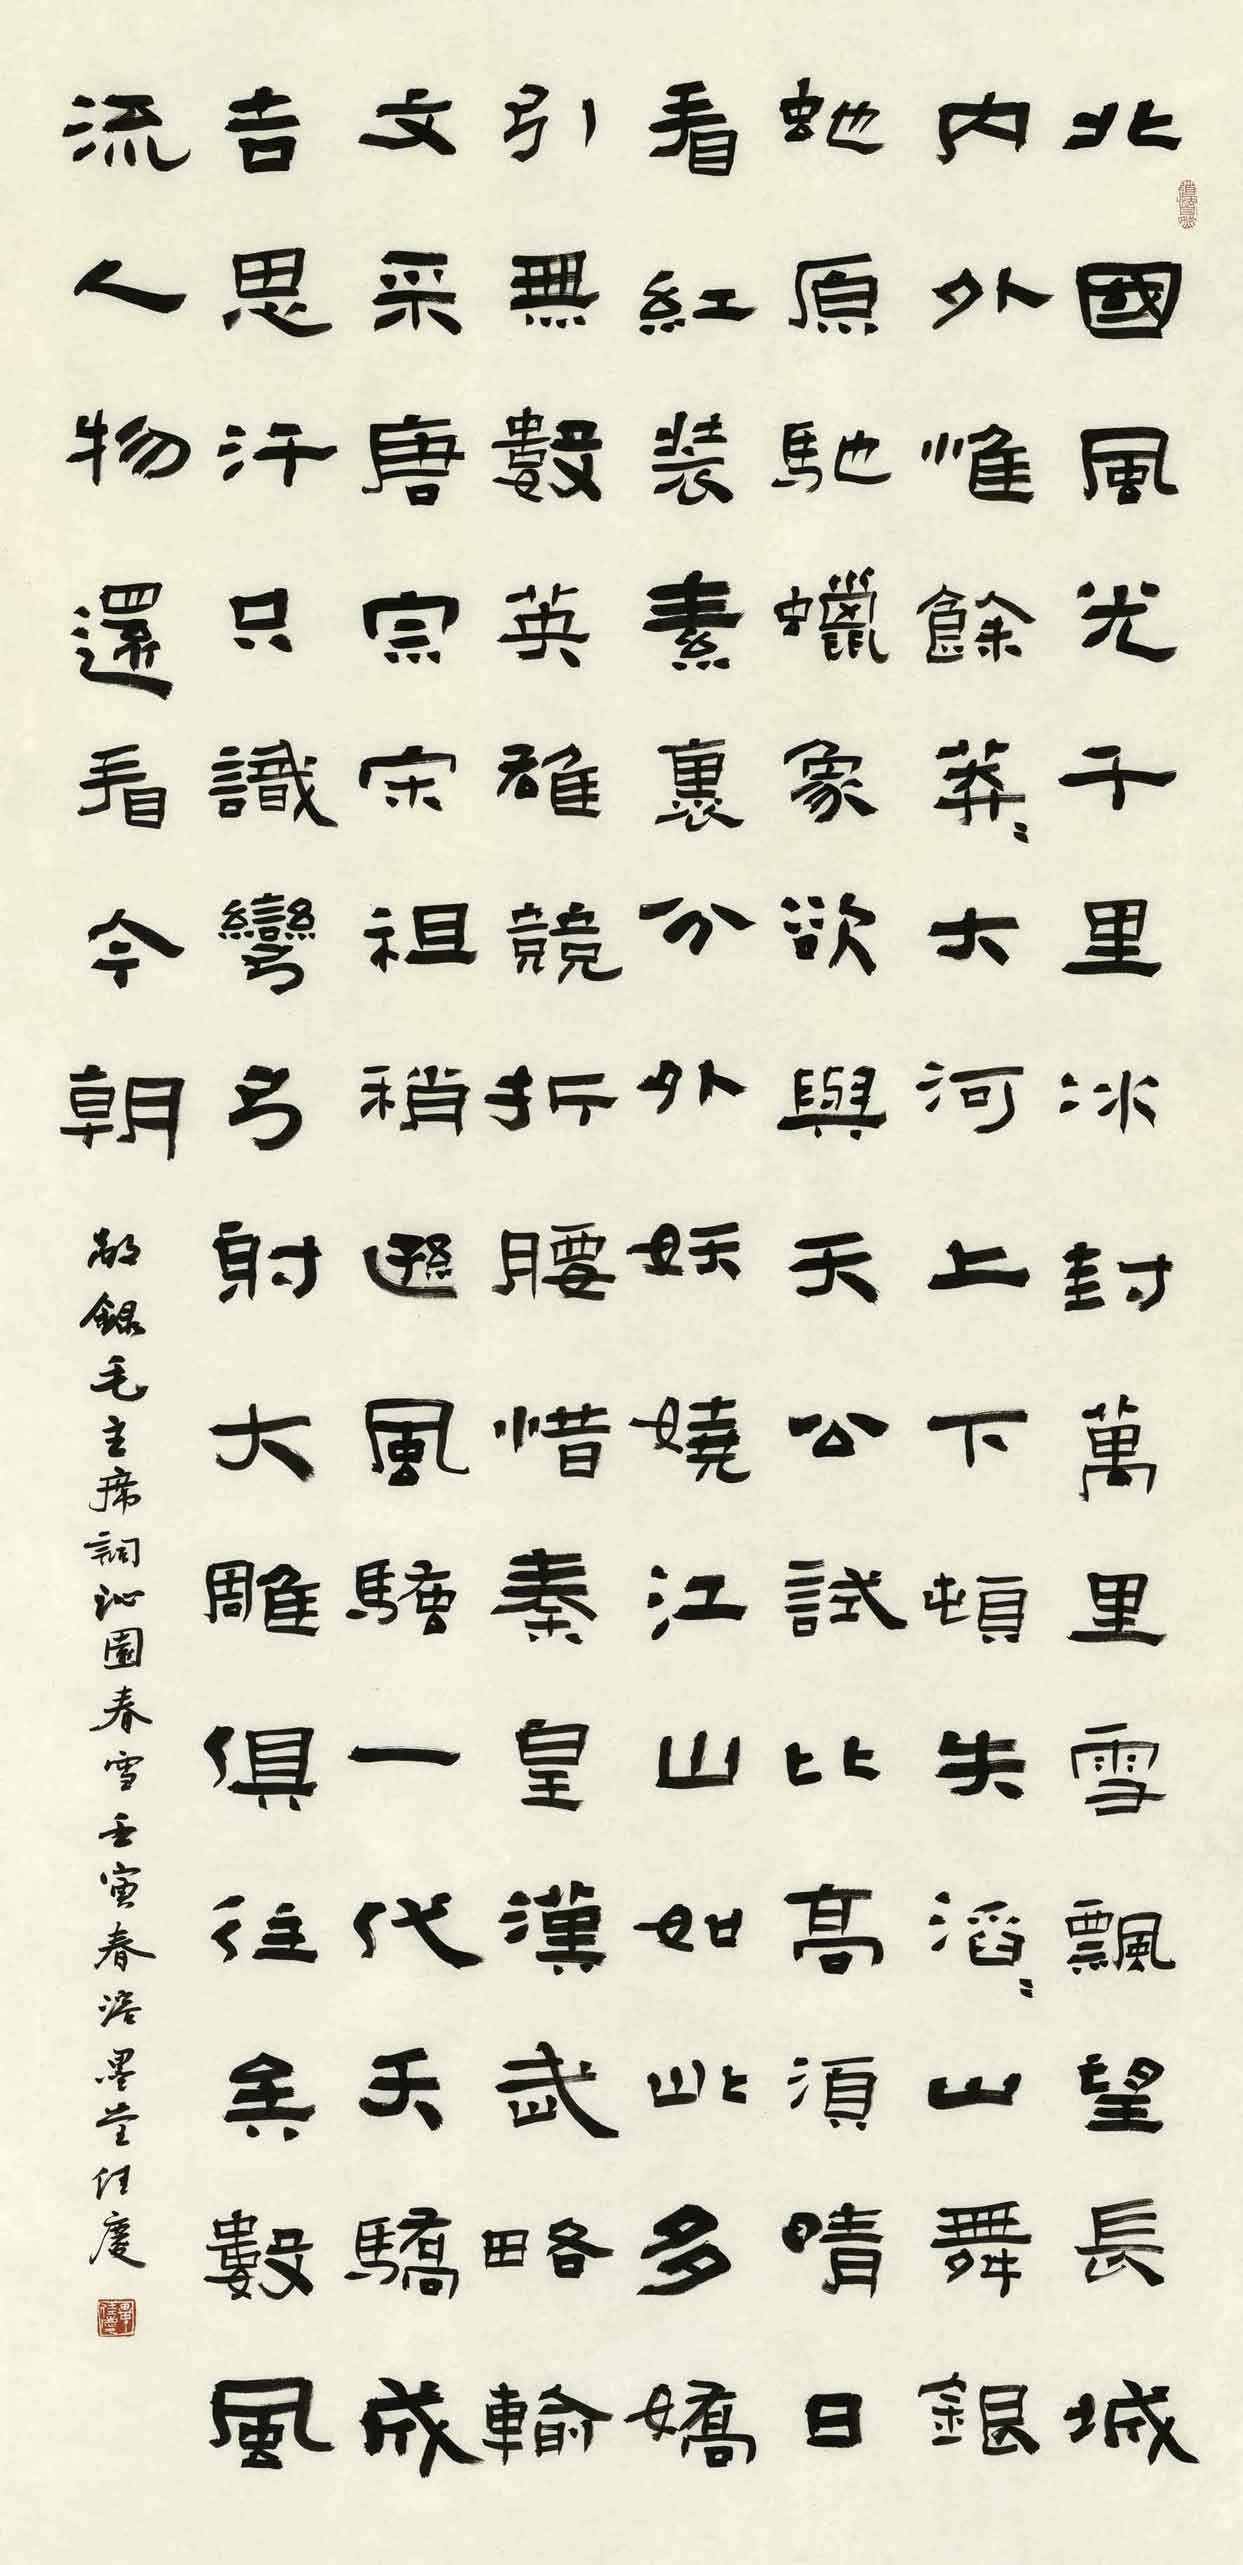 北國風光千里冰封萬里雪飄望長城
内外惟餘莽〻大河上下頓失滔〻山舞銀
虵原馳蠟象欲與天公試比高須晴日
看紅装素裹分外妖嬈江山如此多嬌
引無數英雄競折腰惜秦皇漢武略輸
文采唐宗宋祖稍遜風騷一代天驕成
吉思汗只識彎弓射大雕俱往矣數風
流人物還看今朝
敬録毛主席詞沁園春雪壬寅春墨堂任慶